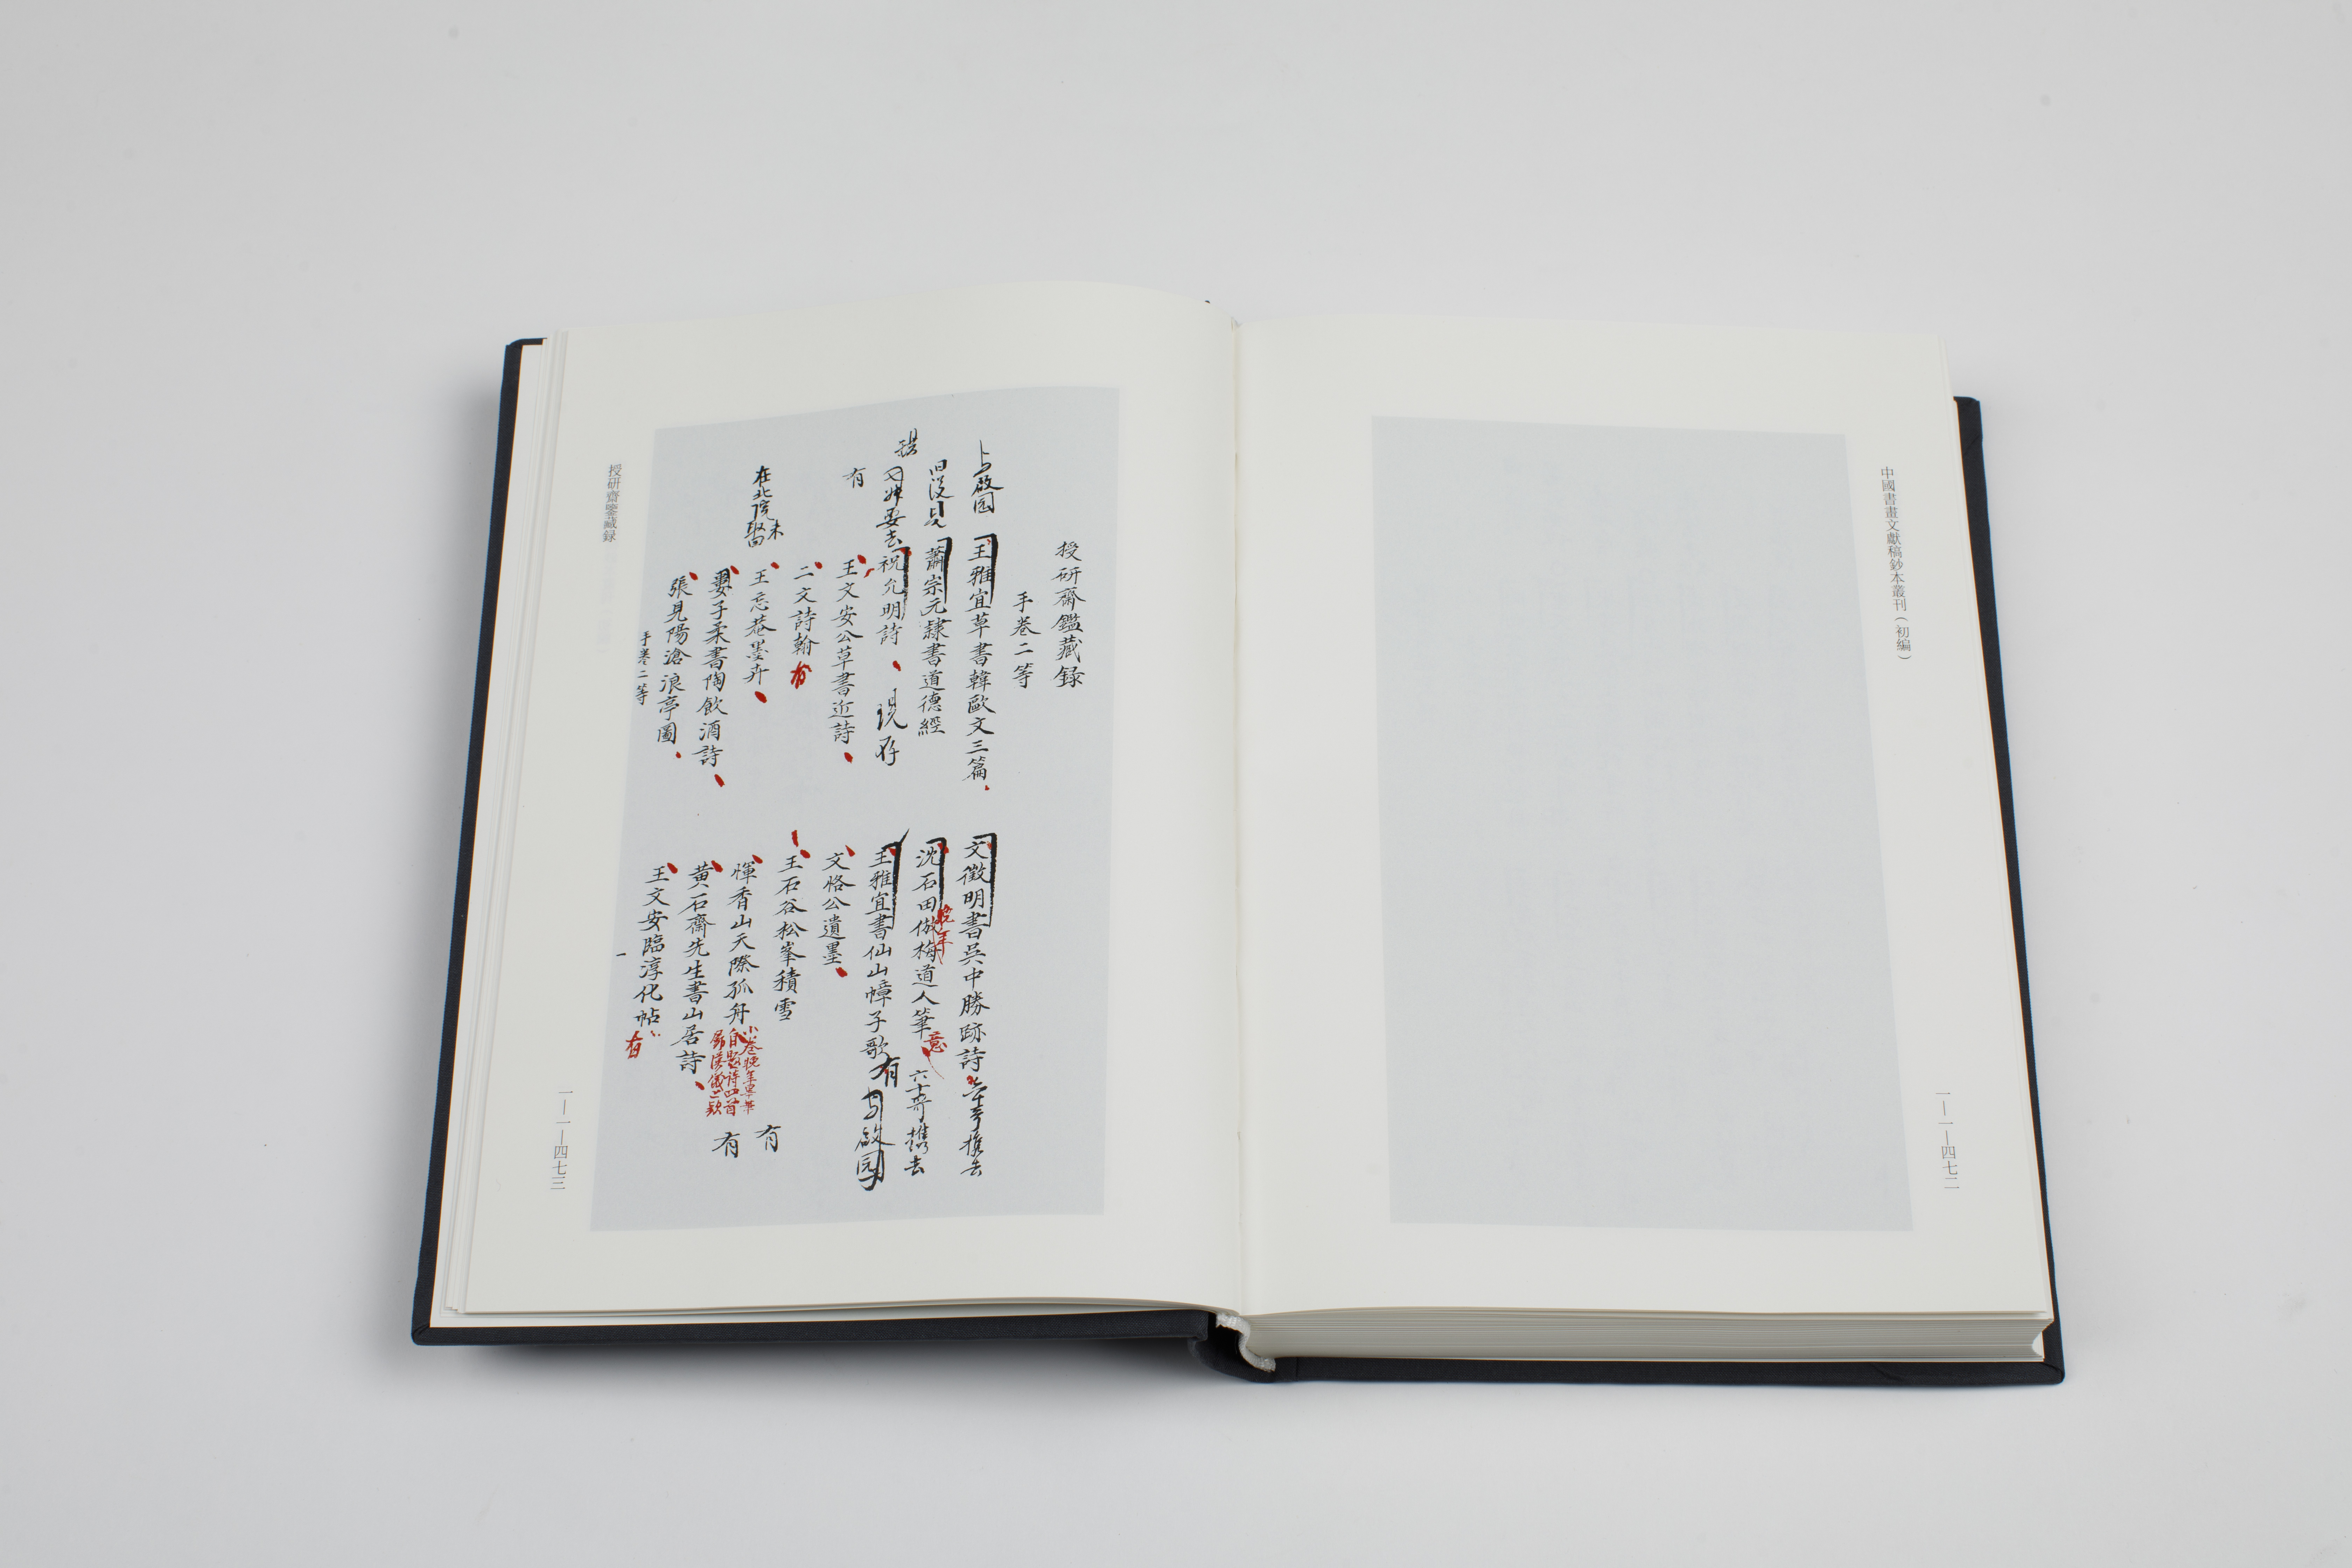 中國書畫文獻稿鈔本叢刊（初編）
一—一—四七二
授研齋鑑藏録
手卷二等
与啟园
王雅宜草書韓歐文三篇
文徵明書吳中勝跡詩
携去
旧没見
蕭宗元隸書道德經
沈石田倣梅道人筆意
晚年
六十哥携去
要去
祝允明詩
現存
王雅宜書仙山幛子歌
有
与啟园
有
王文安公草書近詩
文恪公遺墨
二文詩翰
有
王石谷松峯積雪
在北院未
王忘菴墨卉
惲香山天際孤舟
自題詩四首
有
婁子柔書陶飲酒詩
黃石齋先生書山居詩
有
張見陽滄浪亭圖
王文安臨淳化帖
有
手卷二等
一
授研齋鑒藏録
一—一—四七三